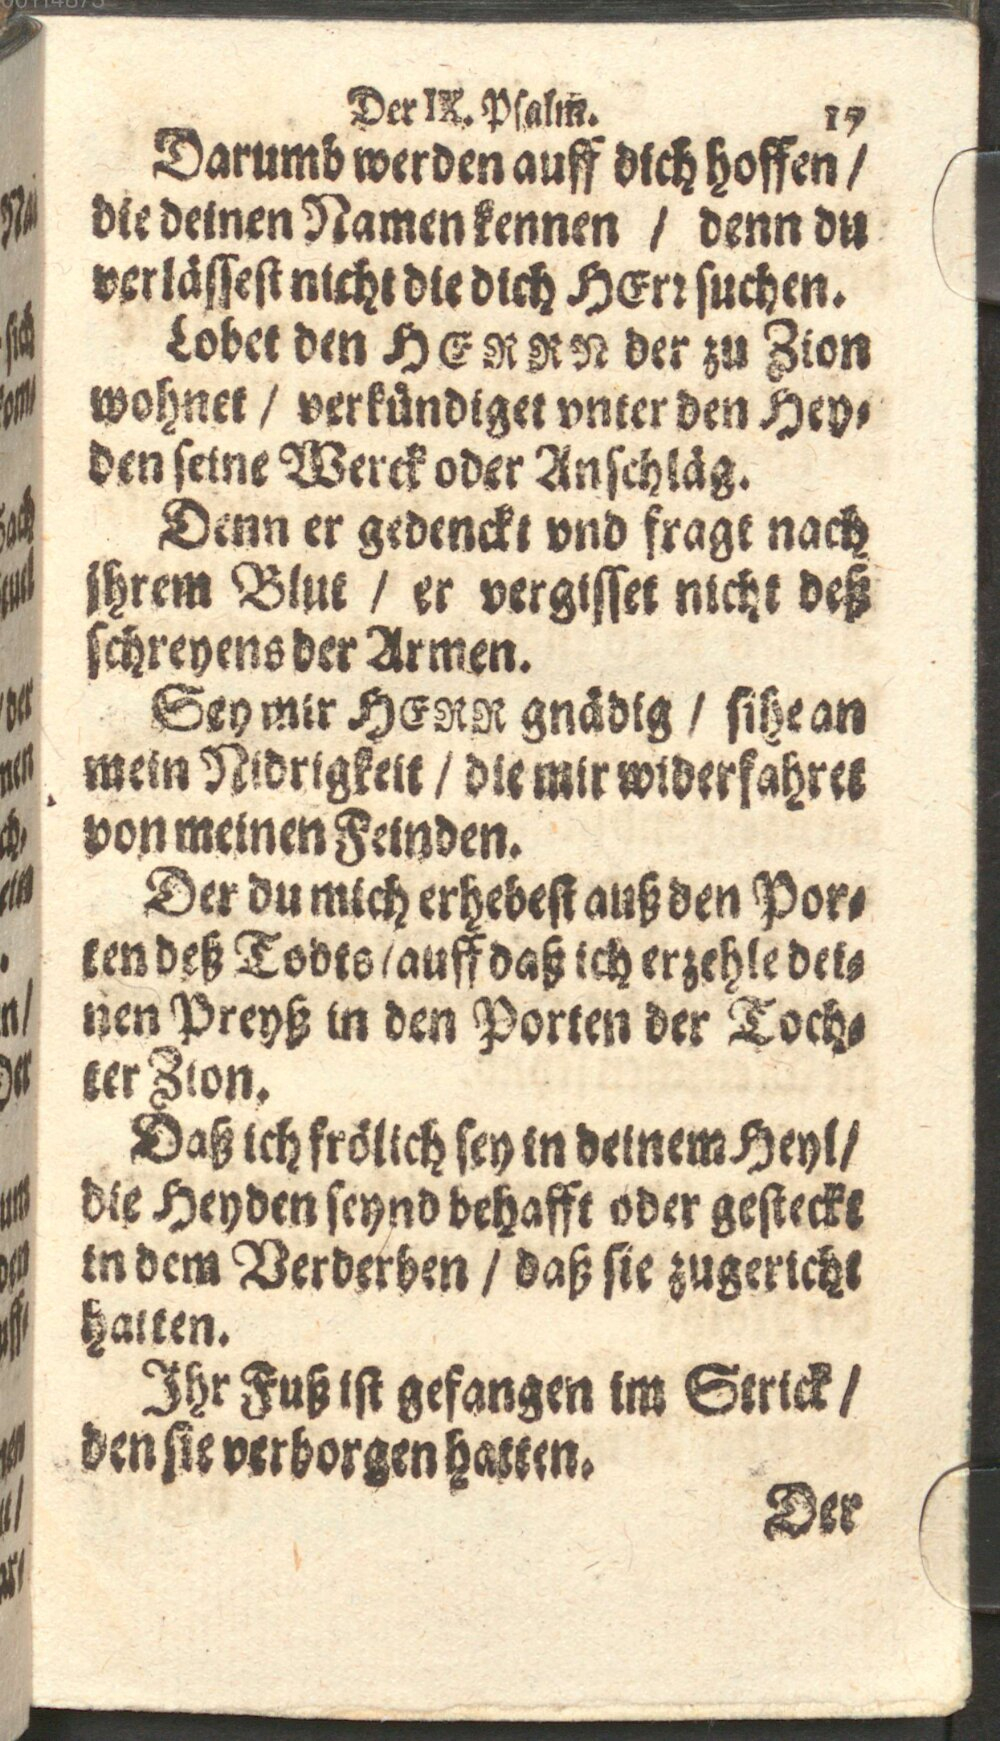 Der IX. Psalm. 17
Darumb werden auff dich hoffen /
die deinen Namen kennen / denn du
verlässest nicht die dich HErr suchen.
Lobet den HERRN der zu Zion
wohnet / verkündiget vnter den Hey-
den seine Werck oder Anschläg.
Denn er gedenckt vnd fragt nach
jhrem Blut / er vergisset nicht deß
schreyens der Armen.
Sey mir HERR gnädig / sihe an
mein Nidrigkeit / die mir widerfahret
von meinen Feinden.
Der du mich erhebest auß den Por-
ten deß Todts / auff daß ich erzehle dei-
nen Preyß in den Porten der Toch-
ter Zion.
Daß ich frölich sey in deinem Heyl /
die Heyden seynd behafft oder gesteckt
in dem Verderben / daß sie zugericht
hatten.
Ihr Fuß ist gefangen im Strick /
den sie verborgen hatten.
Der